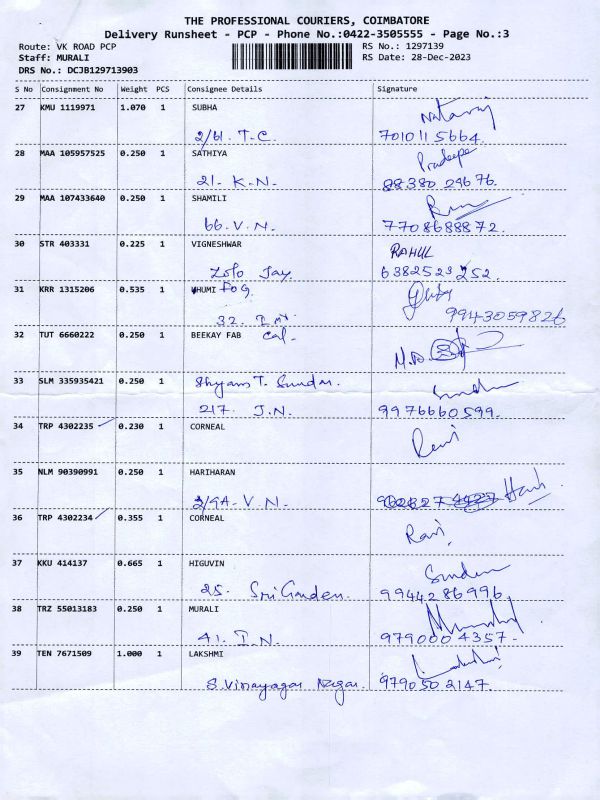 THE PROFESSIONAL COURIERS, COIMBATORE
Delivery Runsheet - PCP - Phone No.:0422-3505555 - Page No.:3
Route: VK ROAD PCP RS No.: 1297139
Staff: MURALI RS Date: 28-Dec-2023
DRS No.: DCJB129713903
S No Consignment No Weight PCS Consignee Details Signature
27 KMU 1119971 1.070 1 SUBHA Nataraj
2/61. T.C. 7010115664.
28 MAA 105957525 0.250 1 SATHIYA Pradeepa
21. K.N. 88380 29676.
29 MAA 107433640 0.250 1 SHAMILI
66. V.N. 7708688872.
30 STR 403331 0.225 1 VIGNESHWAR RAHUL
Zolo Jay 6382523252.
31 KRR 1315206 0.535 1 HUMI FOG
32. 9943059826
32 TUT 6660222 0.250 1 BEEKAY FAB Cal.
33 SLM 335935421 0.250 1 Shyam T. Sundar. Sundar
217. J.N. 9976660599.
34 TRP 4302235 0.230 1 CORNEAL Ravi
35 NLM 90390991 0.250 1 HARIHARAN Harih
2/9A. V.N.
36 TRP 4302234 0.355 1 CORNEAL Ravi,
37 KKU 414137 0.665 1 HIGUVIN Sundar
25. Sri Garden. 9944286996.
38 TRZ 55013183 0.250 1 MURALI
41. I.N. 9790004357.
39 TEN 7671509 1.000 1 LAKSHMI
8. Vinayagar Nagar. 9790502147.